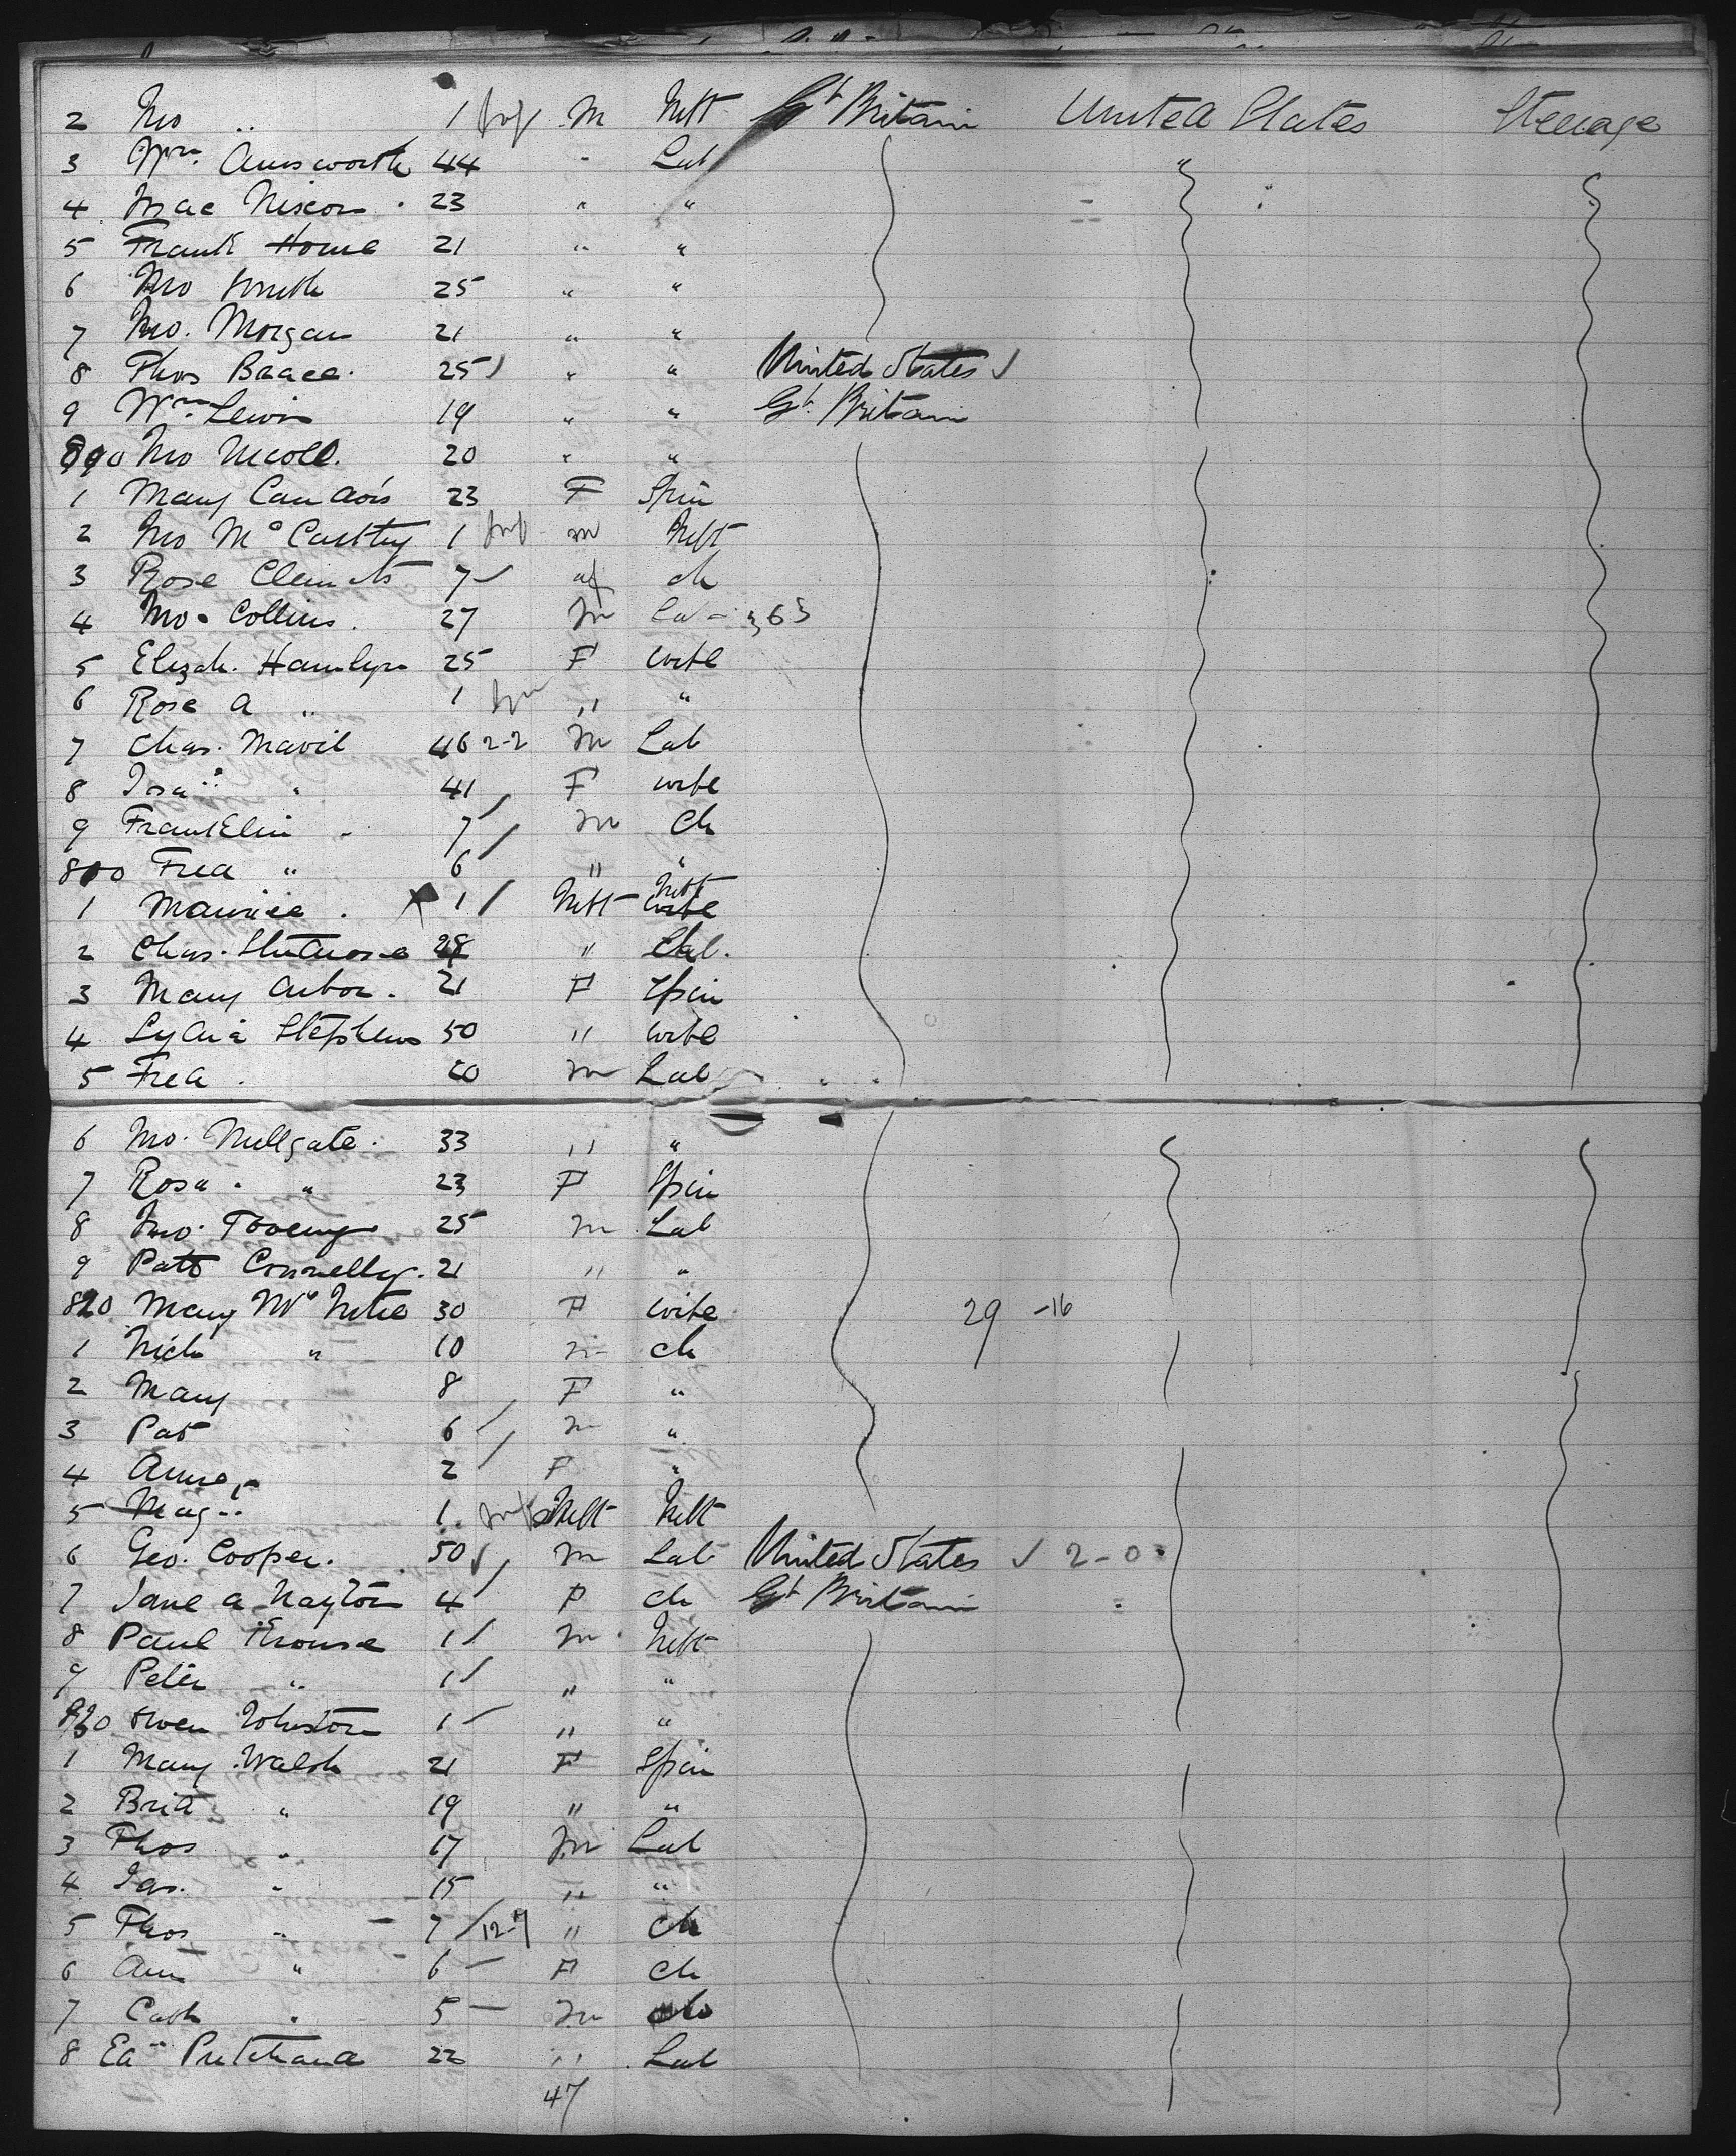 2 Jno " 1 inf M Inft Gt Britain United States Steerage
3 Wm. Ainsworth 44 " Lab "
4 Isac Nixon 23 " "
5 Frank Horne 21 " "
6 Jno Smith 25 " "
7 Jno. Morgan 21 " "
8 Thos Brace. 25 " " United States ✓
9 Wm Lewis 19 " " Gt. Britain
Jno Nicoll. 20 " "
1 Mary 23 F Spin
2 Jno McCarthy 1 inf m Inft
3 Rose Clements 7 f ch
4 Jno. Collins. 27 m Lab
5 Elizah. Hamlyn 25 F wife
6 Rose A " 1 inf " "
7 Chas. Mavil 46 2-2 m Lab
8 Isa " 41 F wife
9 Franklin " 7 m Ch
800 Fred " 6 " "
1 Maurice . 1 / Inft Inft
2 Chas. 28 " Lab.
3 Mary Arbor. 21 F Spin
4 Lydia Stephens 50 " wife
5 Fred . 20 m Lab
6 Jno. Millgate. 33 " "
7 Rosa . " 23 F Spin
8 Jno. 25 m Lab
9 Patk Connelly. 21 " "
820 Mary Mc 30 F wife 29 -16
1 Nich " 10 m ch
2 Mary 8 F "
3 Pat 6 m "
4 Anne 2 F "
5 Mag 1 inf Inft Inft
6 Geo. Cooper. 50 m Lab United States ✓ 2-0
7 Jane A Naylor 4 F ch Gt Britain
8 Paul 1 / m Inft
9 Peter " 1 / " "
830 Owen Johnston 1 " "
1 Mary Walsh 21 F Spin
2 Brid " 19 " "
3 Thos " 17 m Lab
4 Jas. " 15 " "
5 Thos " 7 / 12-7 " ch
6 Ann " 6 F ch
7 Cath " 5 m ch
8 Ed Pritchard 22 " Lab
47